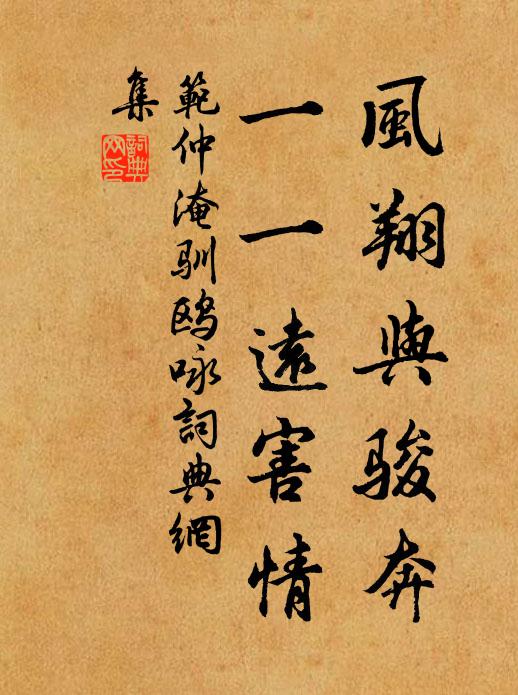 風翔與骏奔
一一遠害情
範仲淹馴鷗咏詞典網
集
詞典网印